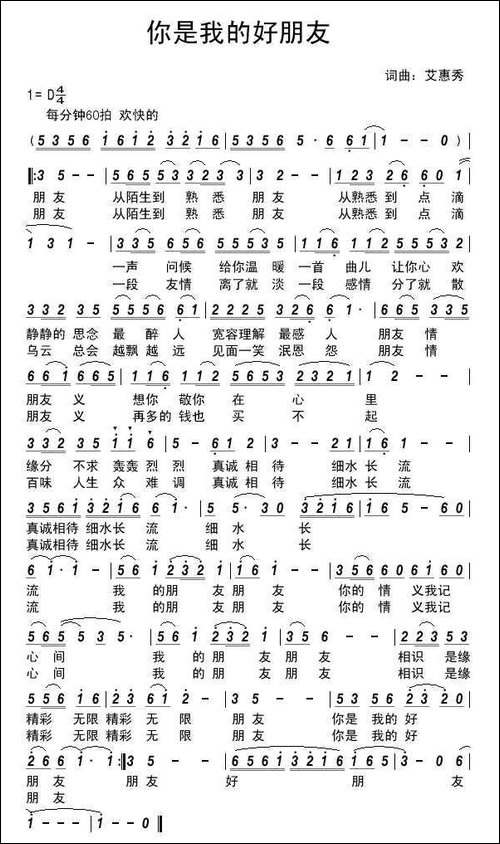 你是我的好朋友
词曲：艾惠秀
1=D 4/4
每分钟60拍 欢快的
(5356 1612 3216 | 5356 5· 661 | 1--0)
‖:35-- | 5556 53323 53- | 3326 601
朋友 从陌生到 熟悉 朋友 从熟悉到 点滴
朋友 从陌生到 熟悉 朋友 从熟悉到 点滴
131- | 335 656 5535- | 116 112 55532
一声 问候 给你温暖 一首 曲儿 让你心欢
一段 友情 离了就淡 一段 感情 分了就散
332 35 5556 61 | 2225 326 61- | 665 335
静静的 思念 最醉人 宽容理解 最感人 朋友情
乌云 总会 越飘越远 见面一笑 泯恩怨 朋友情
661 665 | 116 1212 5653 2321 | 12--
朋友 义 想你 敬你 在 心 里
朋友 义 再多的 钱也 买 不 起
332 35 116 | 5--61 | 213--21 | 16--
缘分 不求 轰轰烈烈 真诚相待 细水长流
百味 人生 众难调 真诚相待 细水长流
3561 3216 61· | 5·530 | 3212 165-60
真诚相待 细水长 流 细 水 长
真诚相待 细水长 流 细 水 长
61·1- | 561 2332 | 1161- | 35660 6161
流 我的朋友 朋友 你的情 义我记
流 我的朋友 朋友 你的情 义我记
565 535· | 561 232 1 | 356-- | 22353
心间 我的朋友 朋友 相识 是缘
心间 我的朋友 朋友 相识 是缘
55616 | 23612-- | 35-- | 5356 556
精彩 无限 精彩 无限 朋友 你是 我的好
精彩 无限 精彩 无限 朋友 你是 我的好
2661·1· :‖ 35-- | 6561 3216 1321 65 | 2·260
朋友 朋友 好 朋 友
朋友
1--- | 1--0 ‖